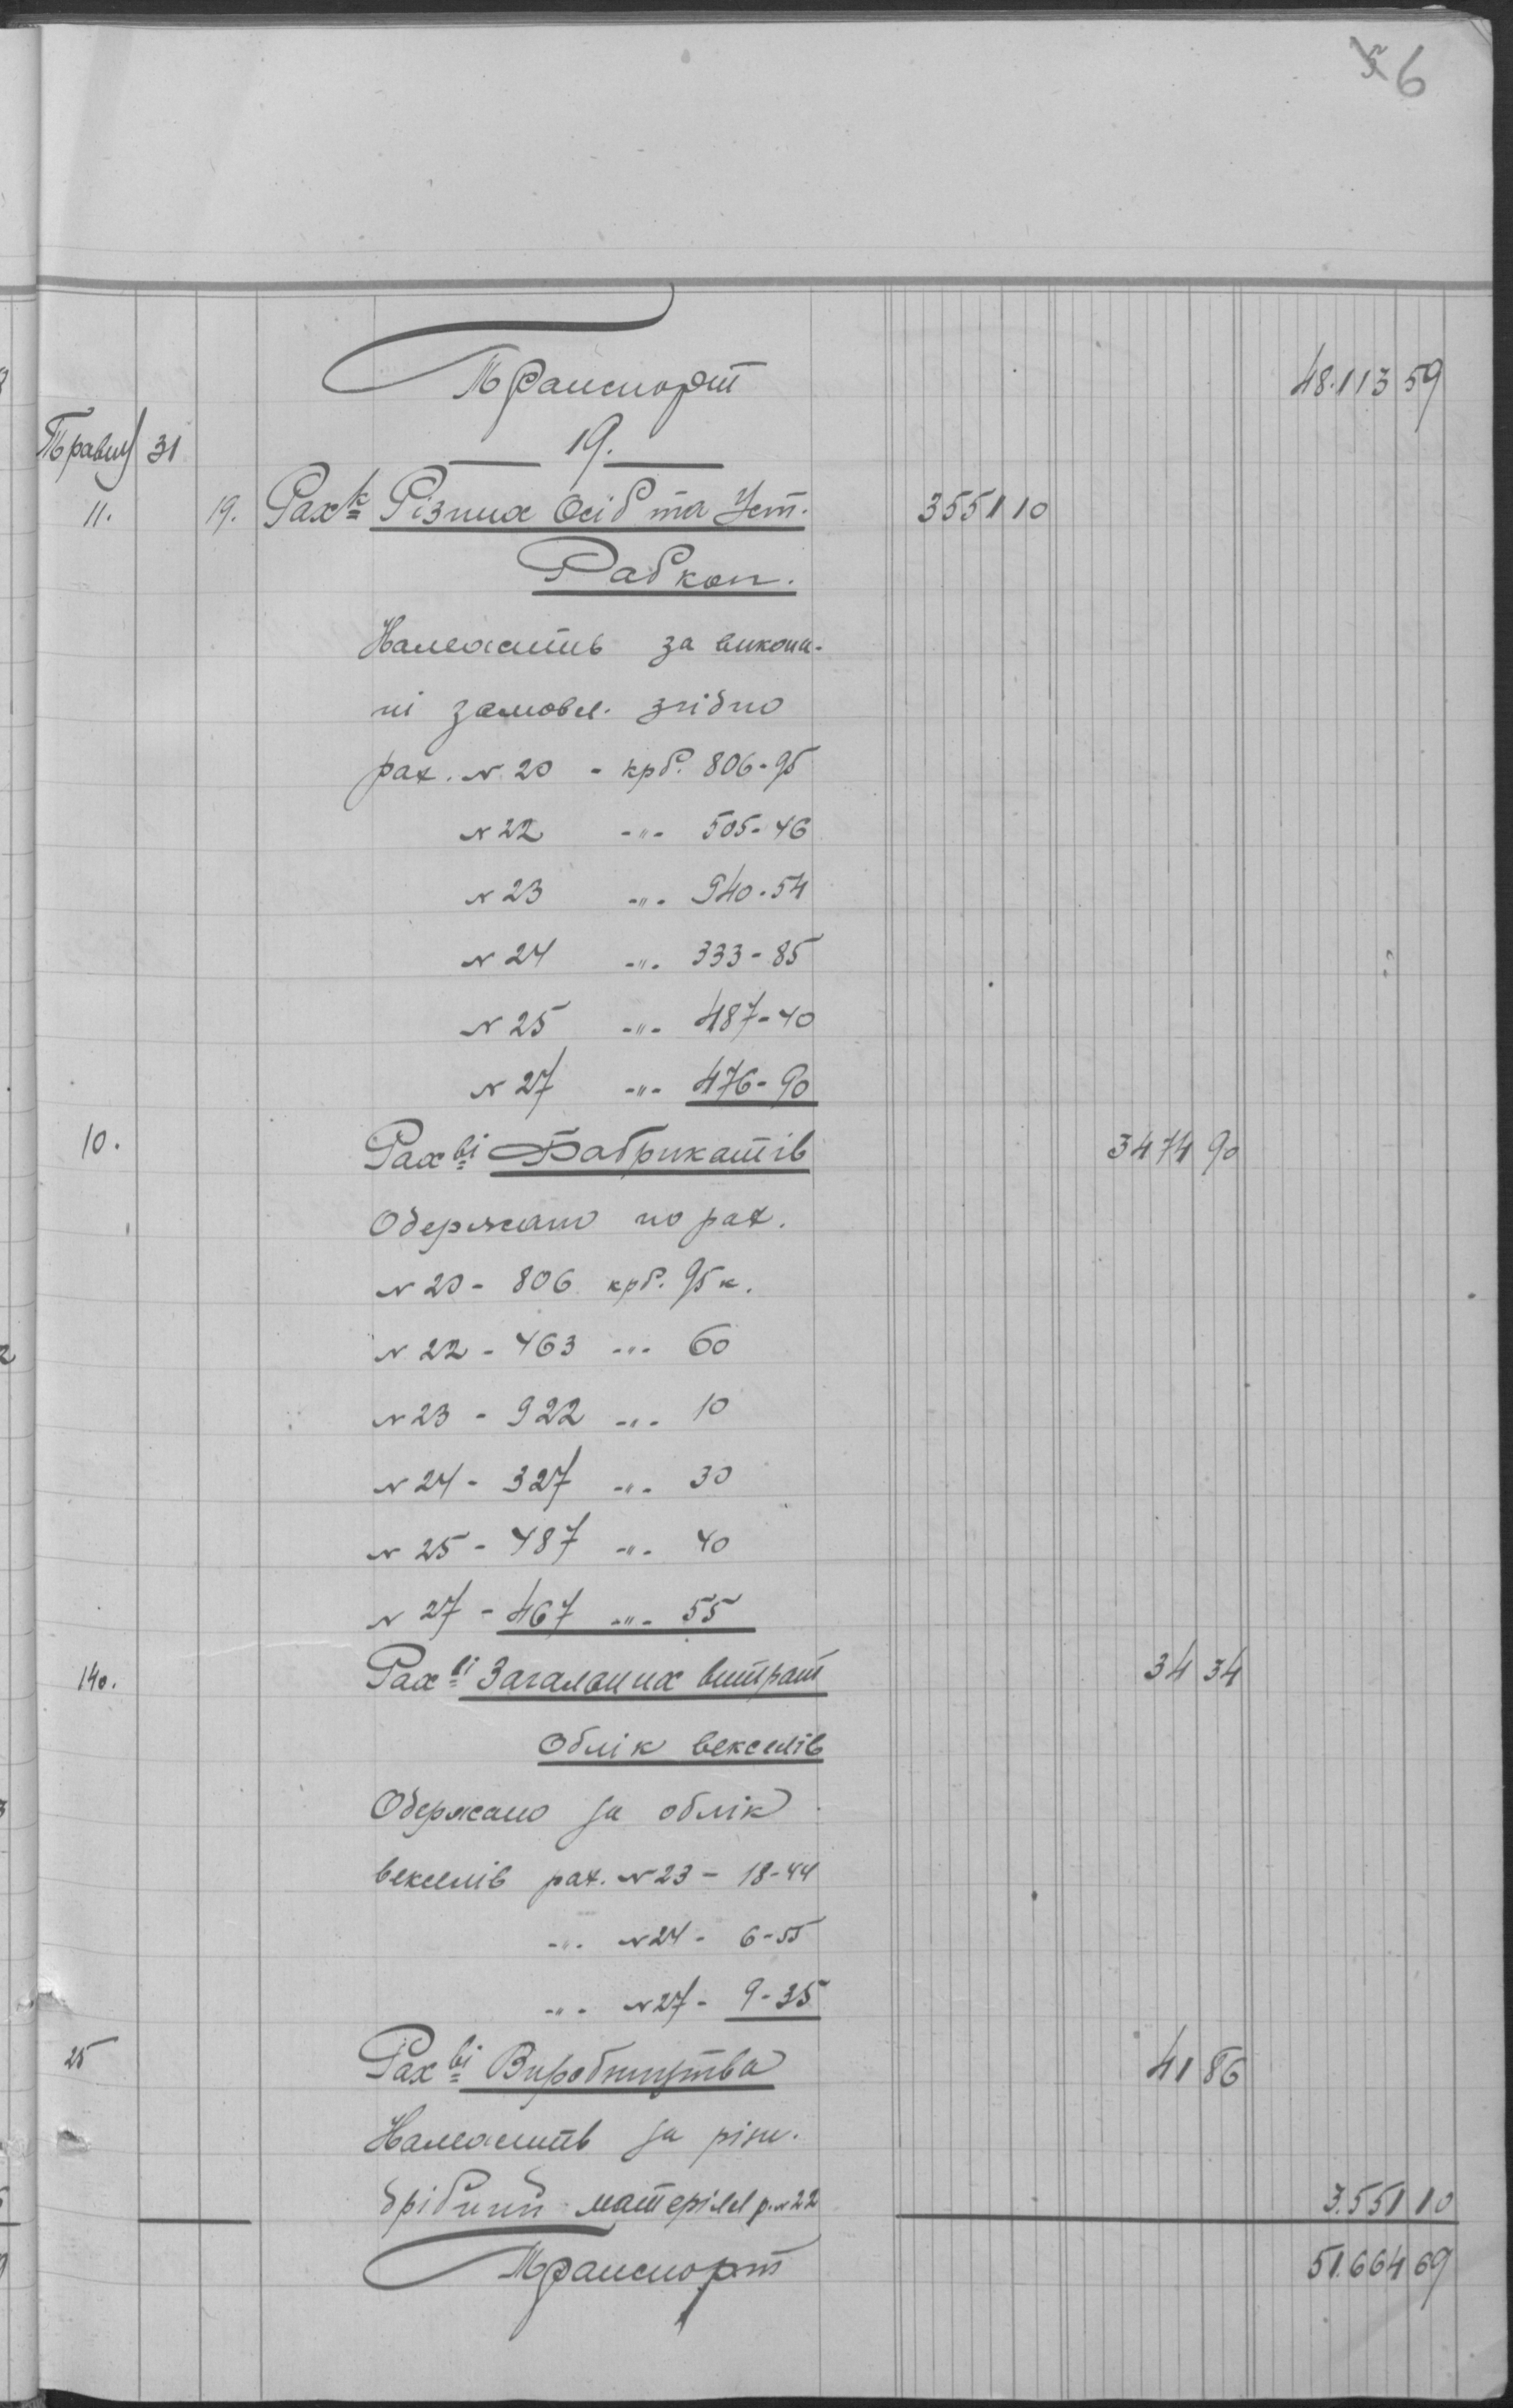 5 6
Транспорт 48.113 59
Травня 31 19.
11. 19. Рахк Різних Осіб та Уст. 3551 10
Рабкоп.
Належить за викона-
ні замовл. згідно
рах. N 20 - крб. 806-95
N 22 -"- 505-46
N 23 -"- 940-54
N 24 -"- 333-85
N 25 -"- 487-40
N 27 -"- 476-90
10. Рахві Фабрикатів 3474 90
Одержано по рах.
N 20 - 806 крб. 95 к.
N 22 - 463 -"- 60
N 23 - 922 -"- 10
N 24 - 327 -"- 30
N 25 - 487 -"- 40
N 27 - 467 -"- 55
140. Рахві Загальних витрат 34 34
Облік векселів
Одержано за облік
векселів рах. N 23 - 18-44
-"- N 24 - 6-55
-"- N 27 - 9-35
25 Рахві Виробництва 41 86
Належить за різн.
дрібний матеріял р. N 22 3.551 10
Транспорт 51.664 69